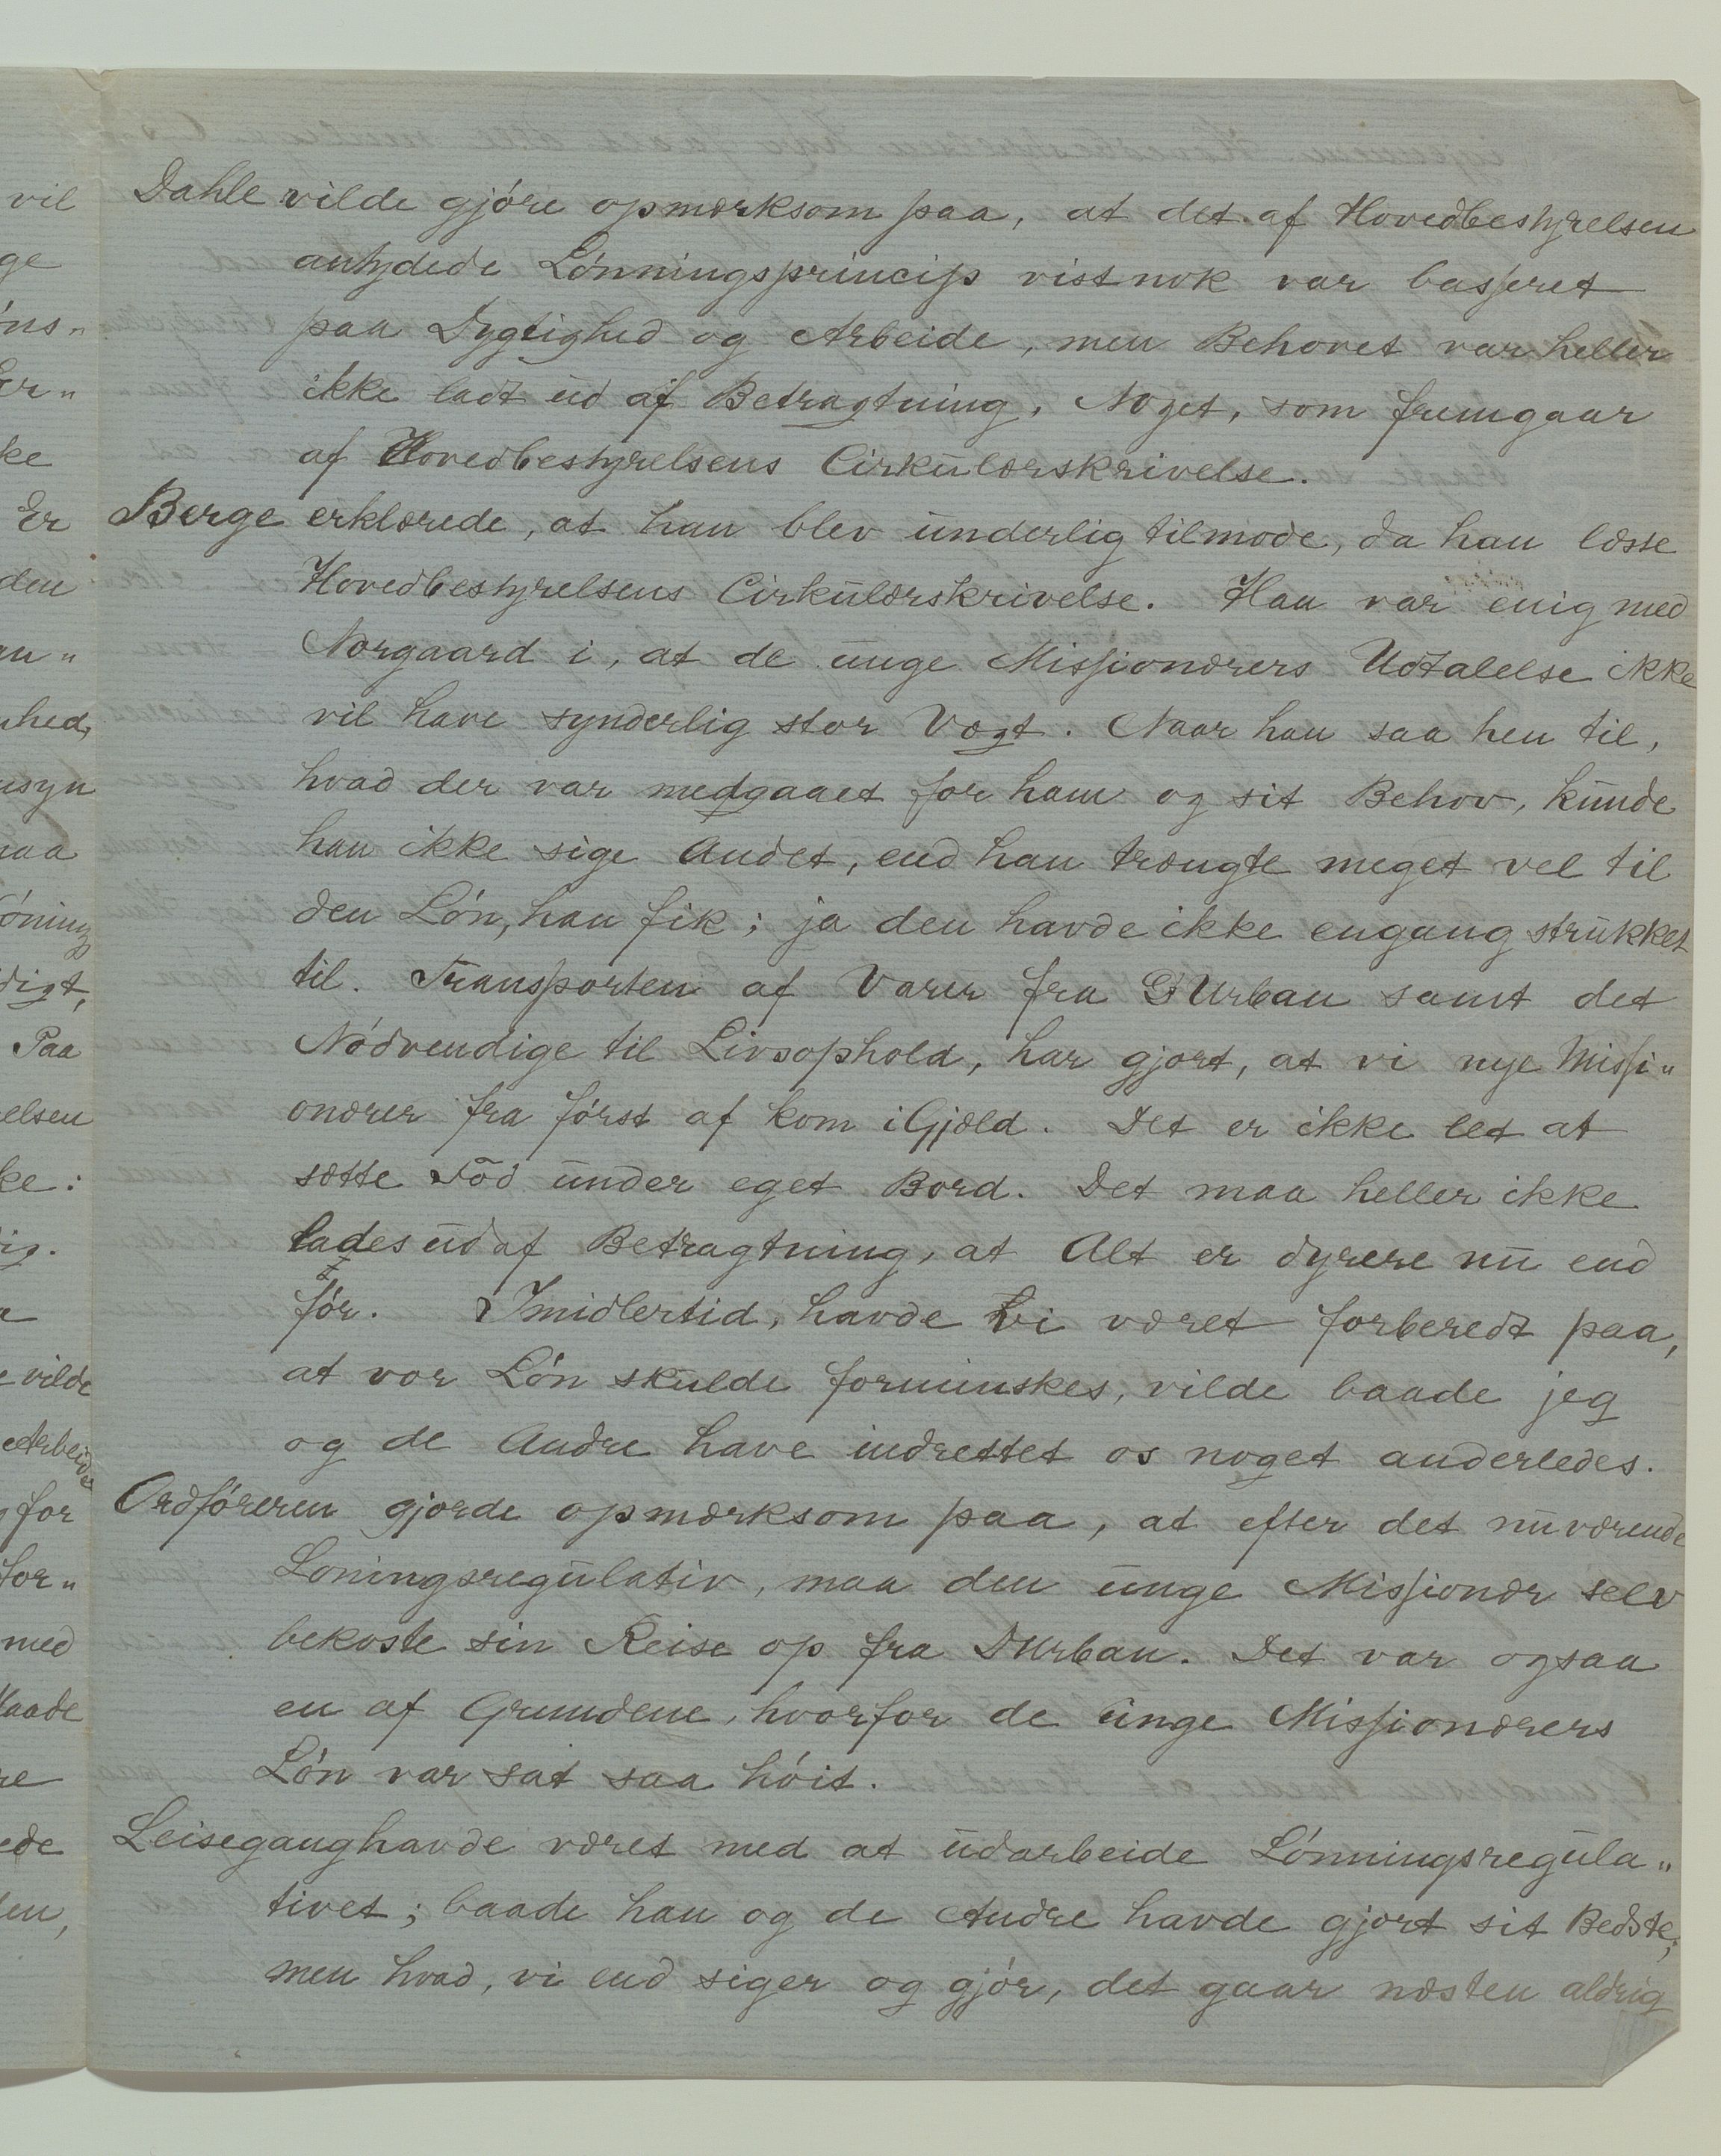 Dahle vilde gjóre opmærksom paa, at det af Hovedbestyrelsen
antydede Lónningsprincip vistnok var basseret
paa Dygtighed og Arbeide, men Behovet var heller
ikke ladt ud af Betragtning, Noget, som fremgaar
af Hovedbestyrelsens Cirkulærskrivelse.
Berge erklærede, at han blev underlig tilmode, da han læsse
Hovedbestyrelsens Cirkulærskrivelse. Han var enig med
Norgaard i, at de unge Missionærers Udtalelse ikke
vil have synderlig stor Vægt. Naar han saa hen til,
hvad der var medgaaet for ham og sit Behov, kunde
han ikke sige Andet, end han trængte meget vel til
den Lón, han fik; ja den havde ikke engang strukket
til. Transporten af Varer fra DUrban samt det
Nódvendige til Livsophold, har gjort, at vi nye Missi„
onærer fra fórst af kom i Gjæld. Det er ikke let at
sætte Fód under eget Bord. Det maa heller ikke
lades ud af Betragtning, at Alt er dyrere nu end
fór. Imidlertid, havde vi været forberedt paa,
at vor Lón skulde forminskes, vilde baade jeg
og de Andre have indrettet os noget anderledes.
Ordfóreren gjorde opmærksom paa, at efter det nuværende
Loningsregulativ, maa den unge Missionær selv
bekoste sin Reise op fra DUrban. Det var ogsaa
en af Grundene, hvorfor de unge Missionærers
Lón var sat saa hóit.
Leisegang havde været med at udarbeide Lónningsregula„
tivet; baade han og de Andre havde gjort sit Bedste;
men hvad, vi end siger og gjór, det gaar næsten aldrig